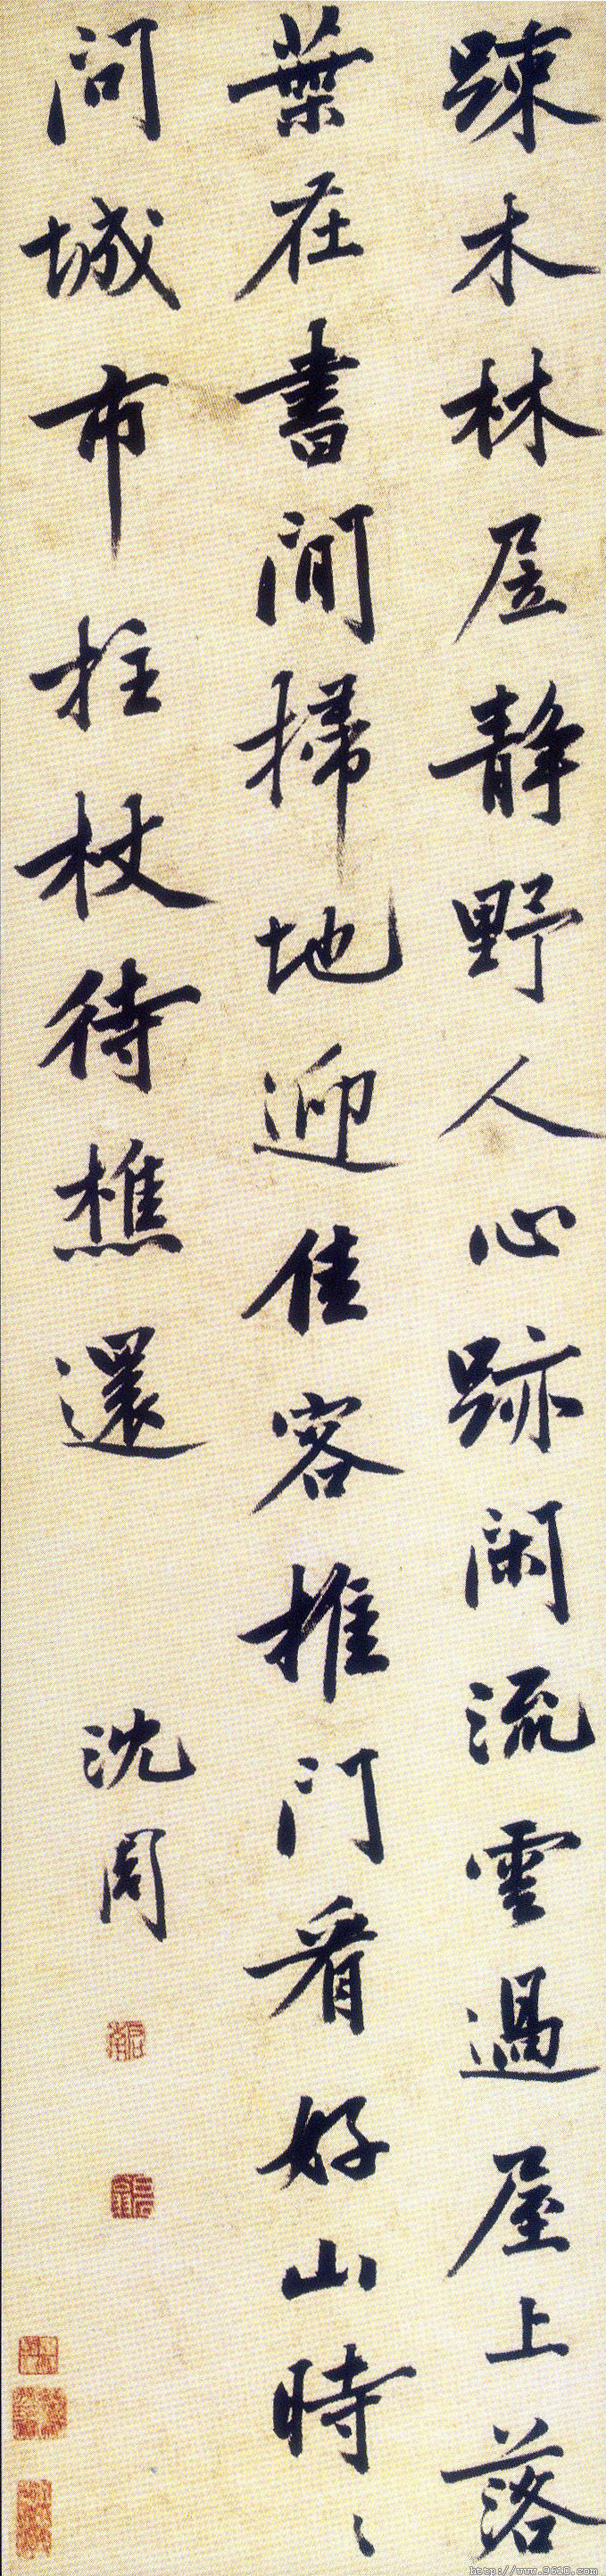 踈木林居静野人心跡閑流雲過屋上落
葉在書間掃地迎佳客推門看好山時〻
問城市拄杖待樵還
沈周
http://www.9610.com